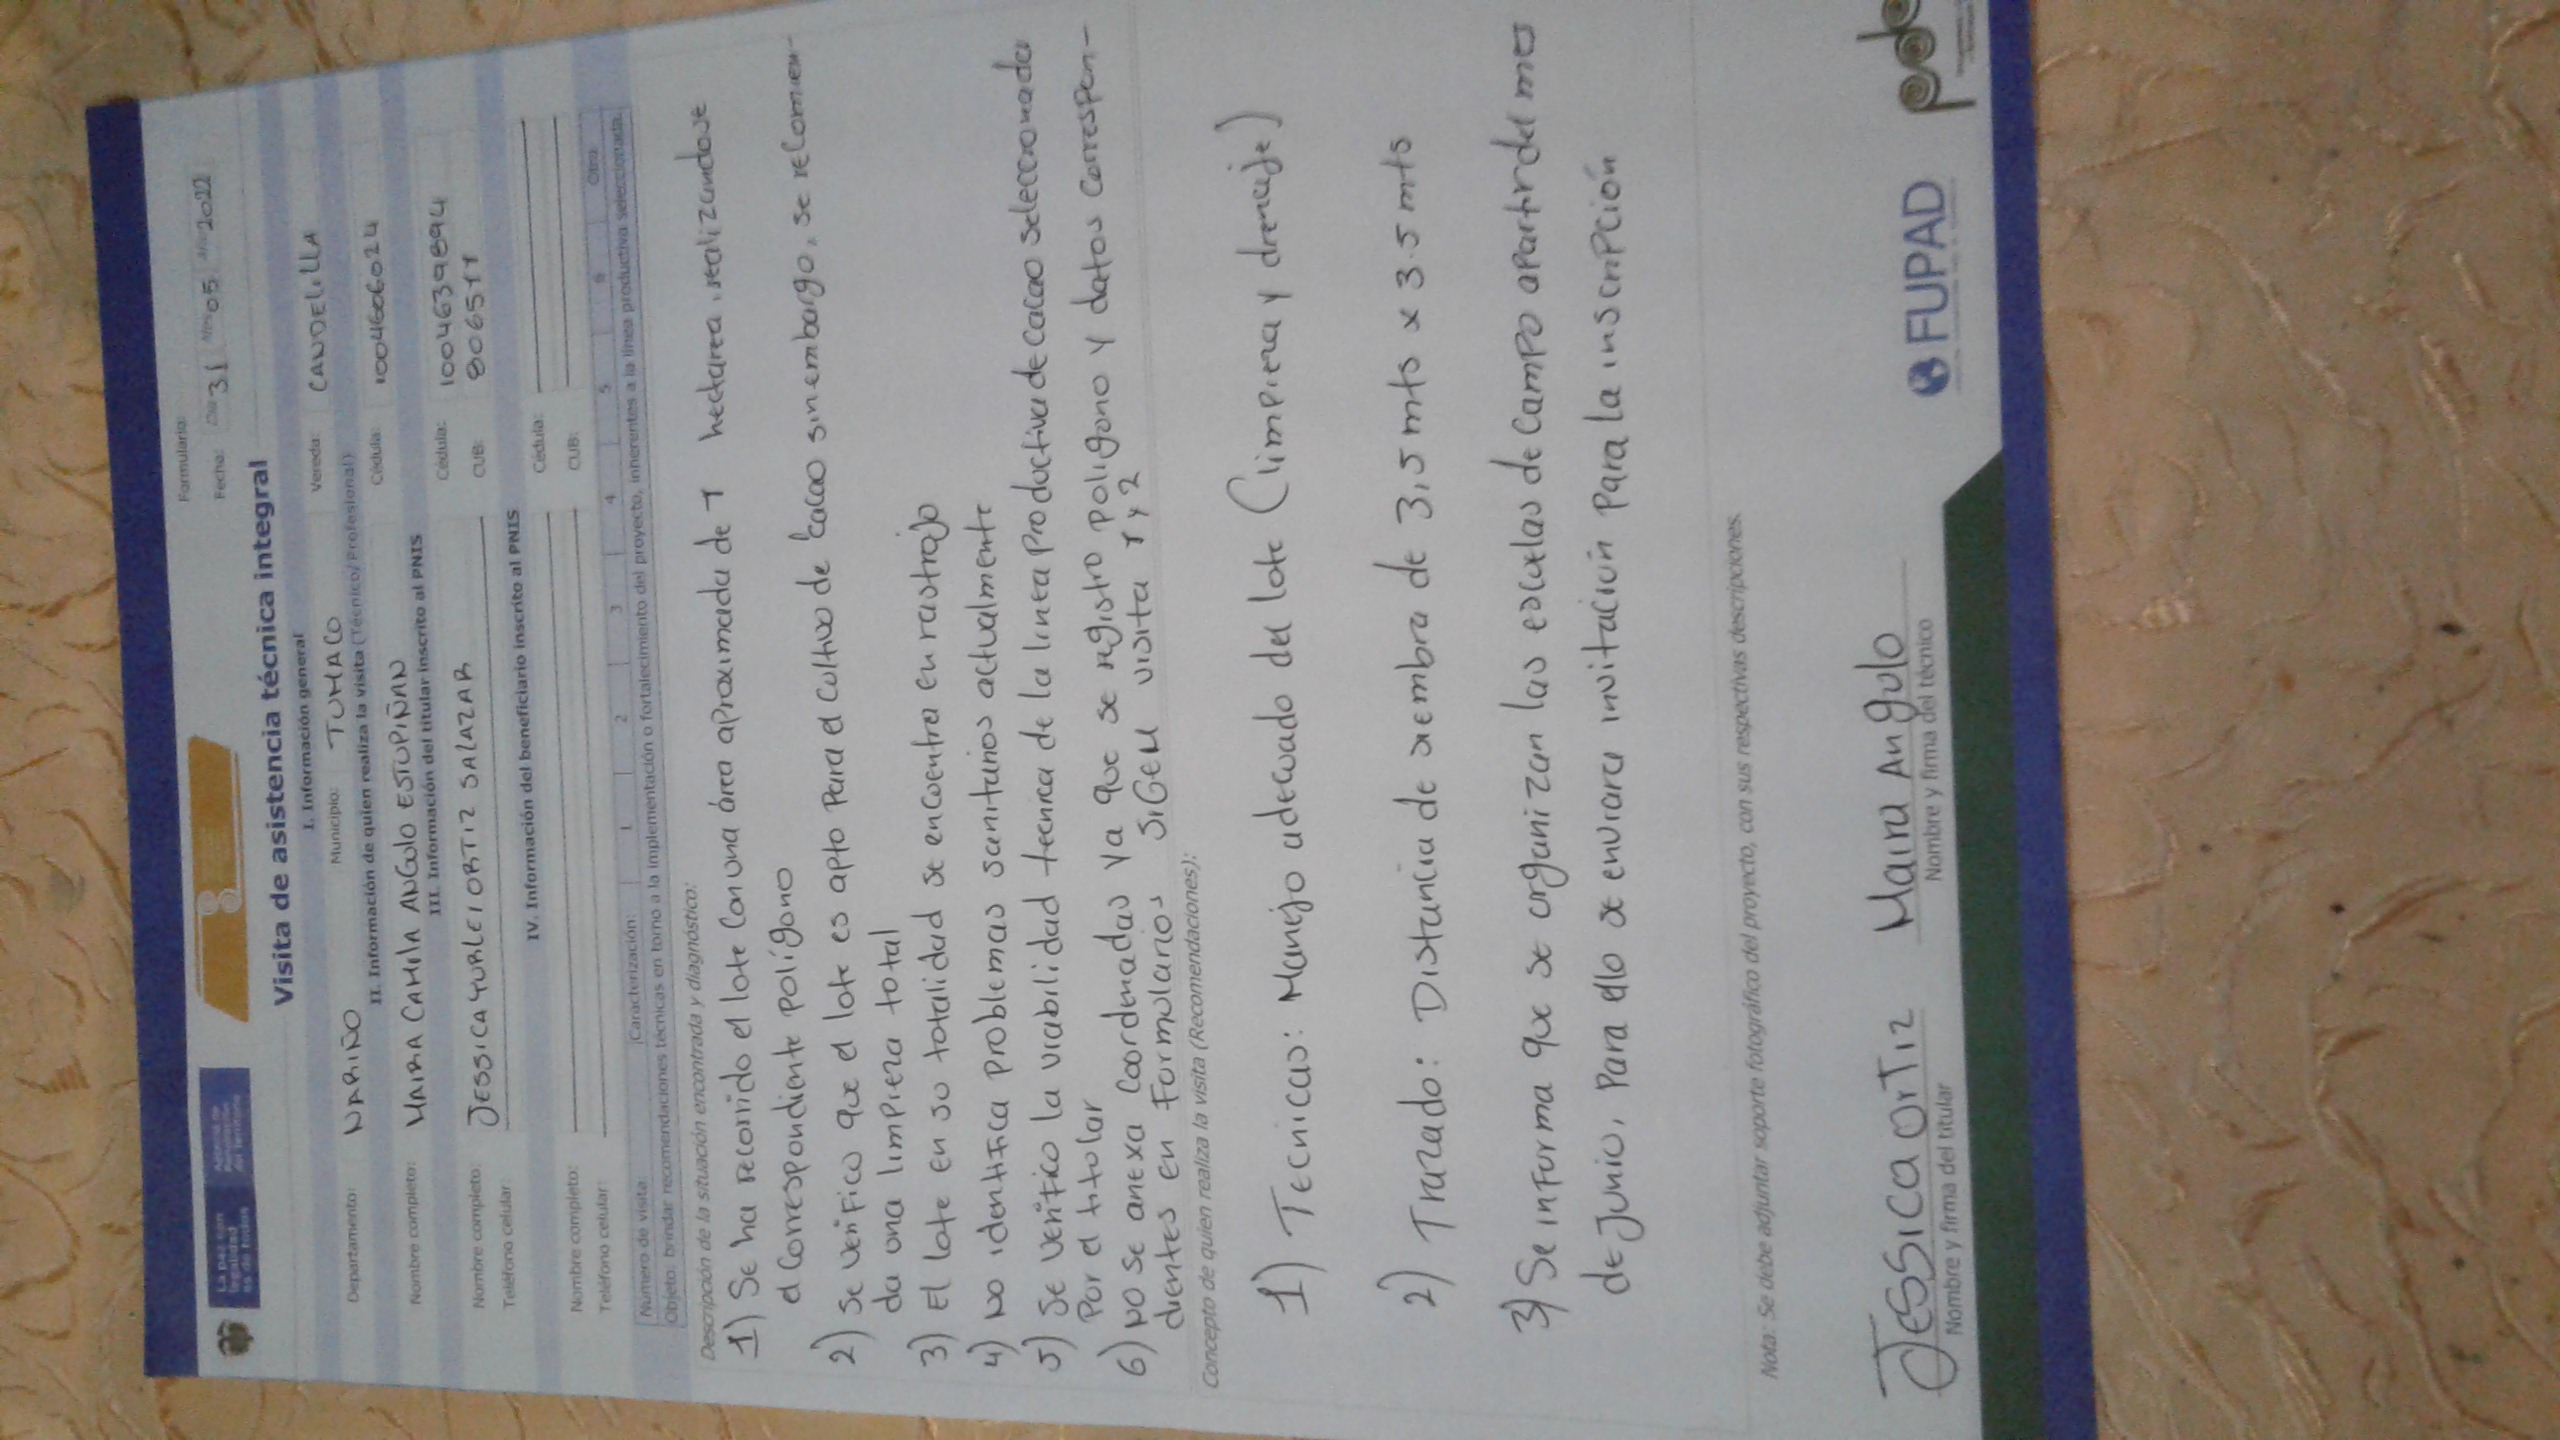 La paz con legalidad es de todos
Agencia de Renovación del Territorio
Formulario:
Fecha: Día 31 Mes 05 Año 2022
Visita de asistencia técnica integral
I. Información general
Departamento: NARIÑO Municipio: TUMACO Vereda: CANDELILLA
II. Información de quien realiza la visita (Técnico/Profesional)
Nombre completo: MAIRA CAMILA ANGULO ESTUPIÑAN Cédula: 1004606024
III. Información del titular inscrito al PNIS
Nombre completo: JESSICA YURLEI ORTIZ SALAZAR Cédula: 1004639894
Teléfono celular: CUB:
IV. Información del beneficiario inscrito al PNIS
Nombre completo: Cédula:
Teléfono celular: CUB:
Número de visita: Caracterización: 1 2 3 4 5 6 Otra
Objeto: brindar recomendaciones técnicas en torno a la implementación o fortalecimiento del proyecto, inherentes a la línea productiva seleccionada.
Descripción de la situación encontrada y diagnóstico:
1) Se ha recorrido el lote con una área aproximada de 1 hectarea, realizandose
el correspondiente polígono
2) Se verifico que el lote es apto para el cultivo de cacao sin embargo, se recomien-
da una limpieza total
3) El lote en su totalidad se encuentra en rastrojo
4) No identifica problemas sanitarios actualmente
5) Se verifico la viabilidad tecnica de la linea productiva de cacao seleccionada
Por el titular
6) No se anexa coordenadas ya que se registro poligono y datos correspon-
dientes en Formularios SIGEM visita 1 y 2
Concepto de quien realiza la visita (Recomendaciones):
1) Tecnicas: Manejo adecuado del lote (limpieza y drenaje)
2) Trazado: Distancia de siembra de 3,5 mts x 3.5 mts
3) Se informa que se organizan las escuelas de campo apartir del mes
de Junio, Para ello se enviara invitación para la inscripción
Nota: Se debe adjuntar soporte fotográfico del proyecto, con sus respectivas descripciones.
Jessica Ortiz Maira Angulo
Nombre y firma del titular Nombre y firma del técnico
FUPAD